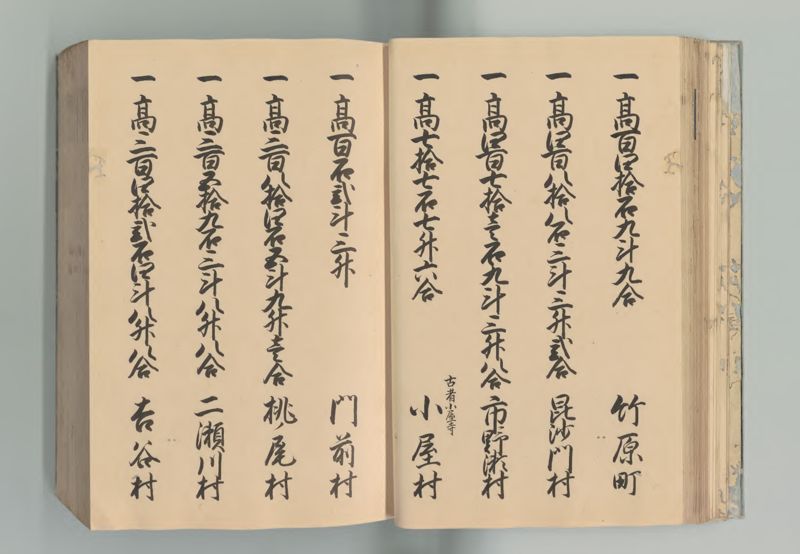 一 高百四拾石九斗九合 竹原町
一 高四百八拾八石三斗三升弐合 毘沙門村
一 高四百七拾壱石九斗三升八合 市野瀬村
一 高七拾七石七升六合 古者小屋寺 小屋村
一 高百石弐斗三升 門前村
一 高三百八拾四石五斗九升壱合 桃尾村
一 高三百五拾九石三斗八升八合 二瀬川村
一 高三百四拾弐石四斗八升八合 杏谷村